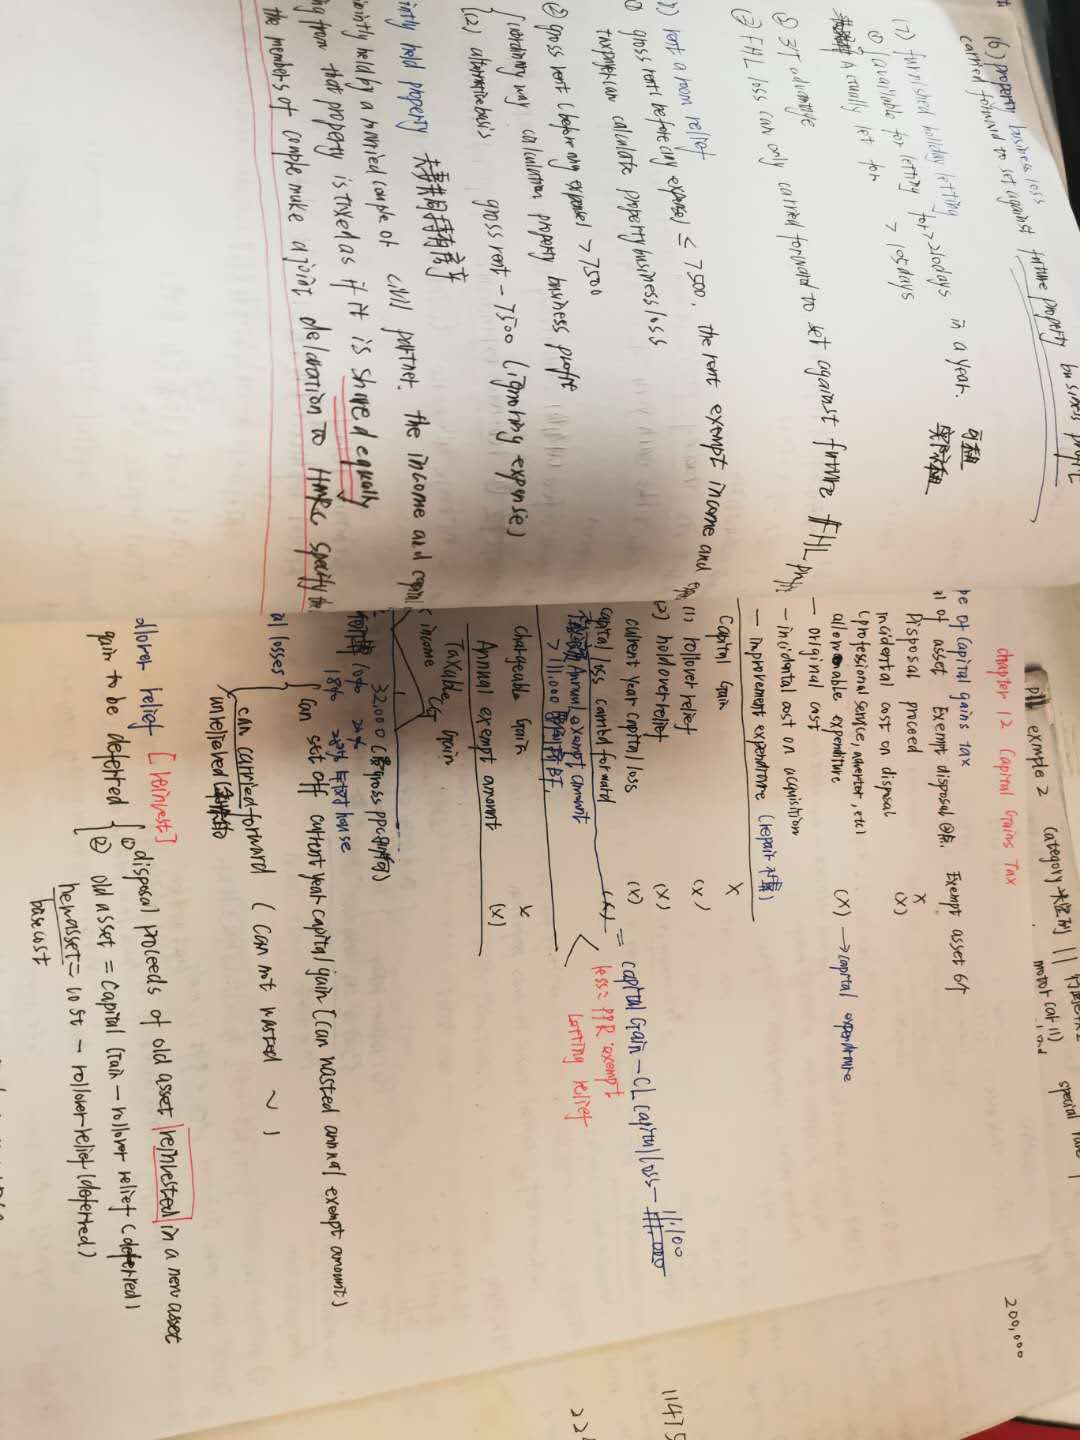 (6) property business loss
carried forward to set against future property business profit
(7) furnished holiday letting
① available for letting for > 210 days in a year. 可租
Actually let for > 105 days 实际租
② IT advantage
③ FHL loss can only carried forward to set against future FHL
rent a room relief
① gross rent before any expense ≤ 7500, the rent exempt income and
taxpayer can calculate property business loss
② gross rent (before any expense) > 7500
ordinary way calculation property business profit
(2) alternative basis gross rent - 7500 (ignoring expense)
intly held property 夫妻共同持有房子
ointly held by a married couple or civil partner, the income and capital
ng from that property is taxed as if it is shared equally
the members of couple make a joint delaration to HMRC specify the
example 2 category
motor car (11)
special rate
200,000
chapter 12 Capital Gains Tax
pe of capital gains tax
al of asset Exempt disposal Exempt asset 6个
Disposal proceed x
incidental cost on disposal (x)
(professional service, advertor, etc)
allowable expenditure (x) → capital expenditure
- original cost
- incidental cost on acquisition
- improvement expenditure (repair 不算)
Capital Gain x
(1) rollover relief (x)
(2) holdover relief (x)
current year capital loss (x)
capital loss carried forward (x) = capital Gain - CL capital loss - 11,100
less: PPR exempt
Letting relief
chargeable Gain x
Annual exempt amount (x)
Taxable Gain
income CG
32,000
10% 20%
18% 28% house
al losses
Can set off current year capital gain (can wasted annal exempt amount)
can carried forward (can not wasted ~ )
unrelieved
ollover relief [reinvest]
gain to be deferred
① disposal proceeds of old asset reinvested in a new asset
② old asset = Capital Gain - rollover relief (deferred)
new asset = cost - rollover relief (deferred)
base cost
11475